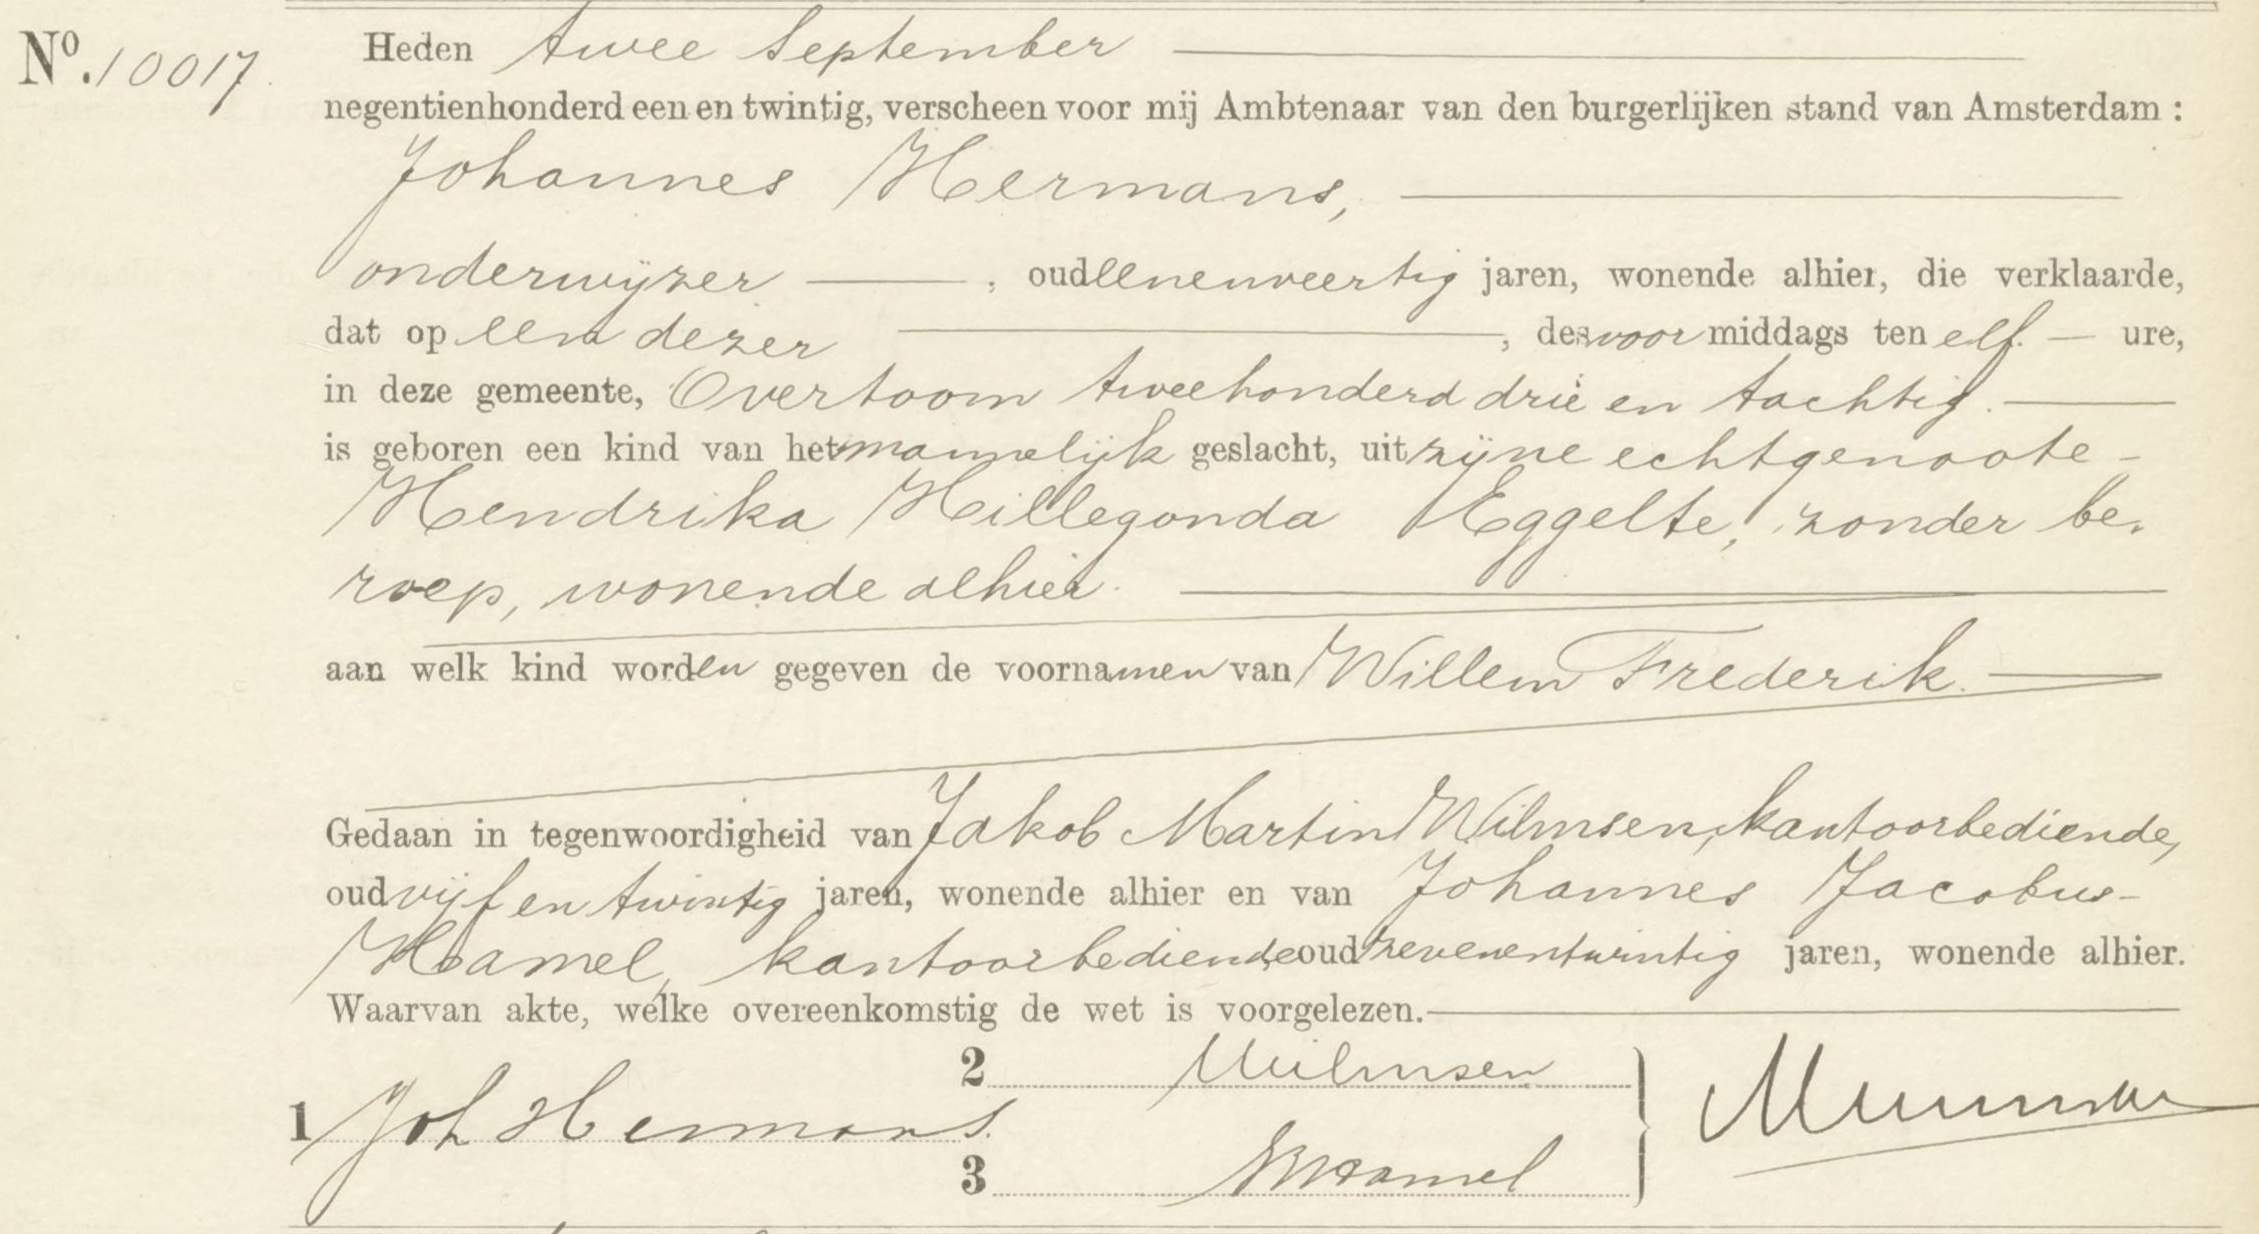 No. 10017
Heden twee September
negentienhonderd een en twintig, verscheen voor mij Ambtenaar van den burgerlijken stand van Amsterdam :
Johannes Hermans,
onderwijzer , oud eenenveertig jaren, wonende alhier, die verklaarde,
dat op een dezer , des voor middags ten elf. ure,
in deze gemeente, Overtoom tweehonderd drie en tachtig.
is geboren een kind van het mannelijk geslacht, uit zijne echtgenoote
Hendrika Hillegonda Eggelte, zonder be-
roep, wonende alhier.
aan welk kind worden gegeven de voornamen van Willem Frederik.
Gedaan in tegenwoordigheid van Jakob Martin Wilmsen, kantoorbediende,
oud vijf en twintig jaren, wonende alhier en van Johannes Jacobus
Hamel, kantoorbediende oud zevenentwintig jaren, wonende alhier.
Waarvan akte, welke overeenkomstig de wet is voorgelezen.
2 Wilmsen
1 Joh Hermans.
3 Hamel